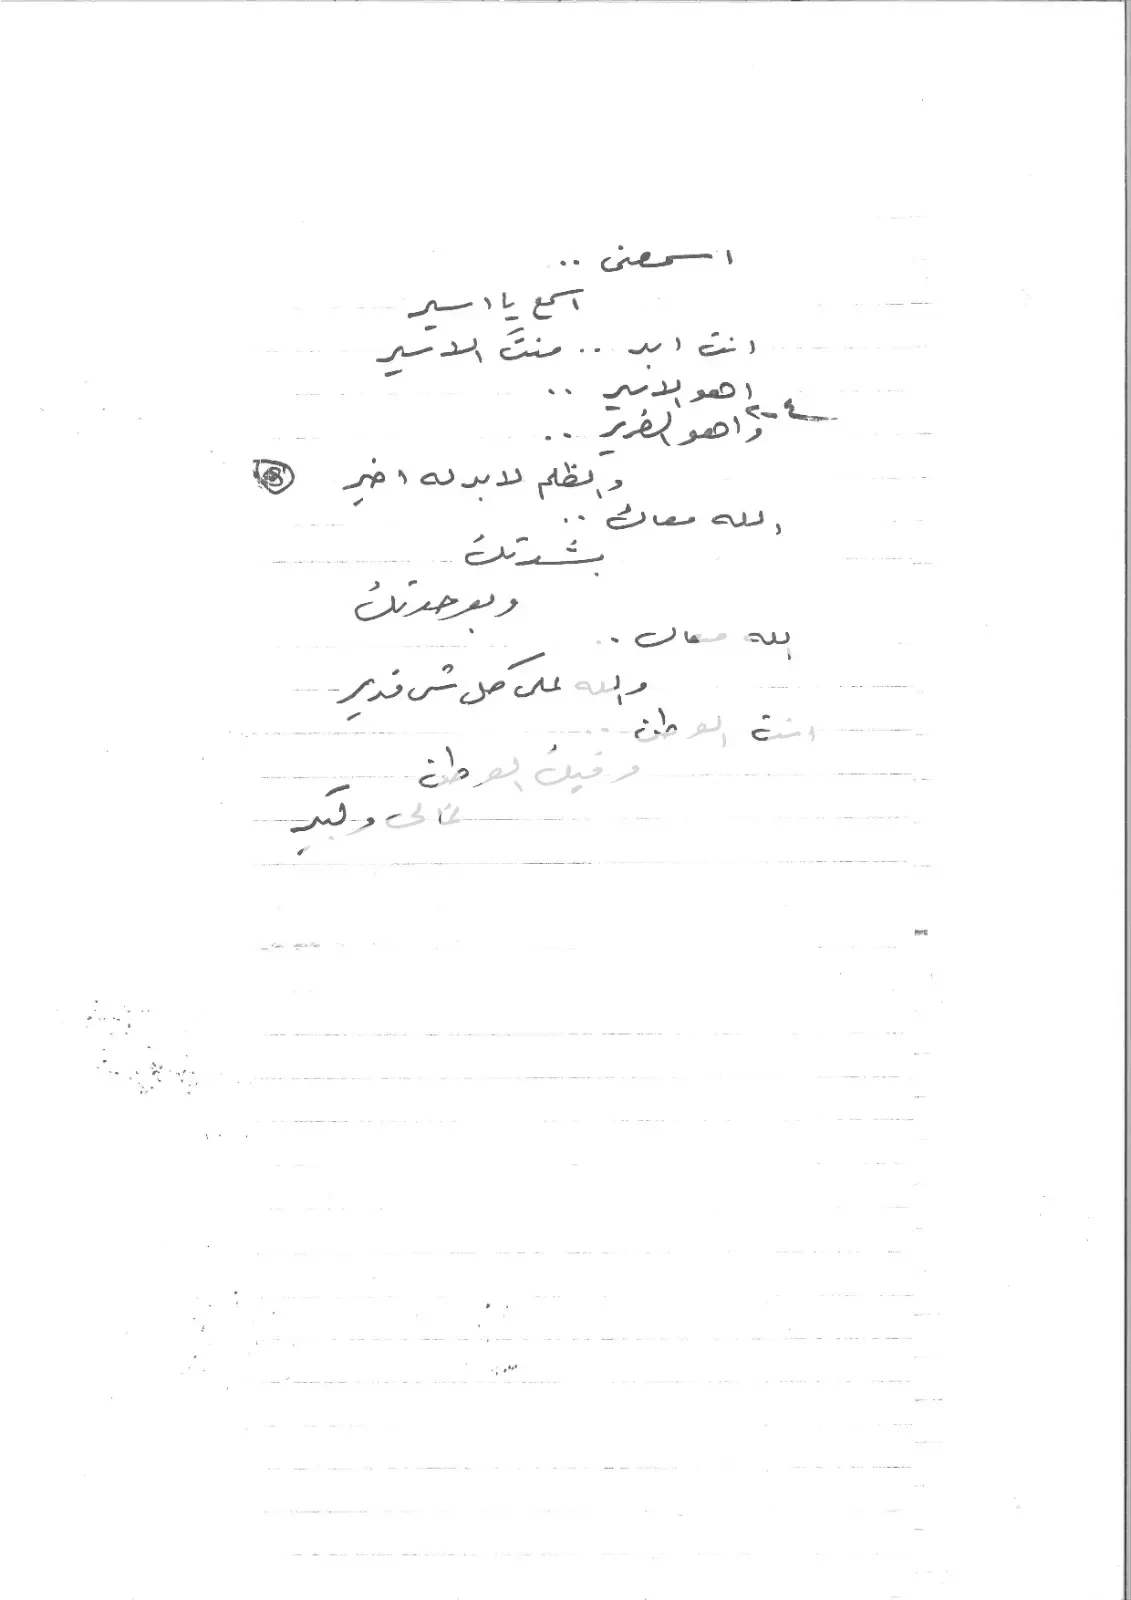 اسمعنى ..
اسمع يا اسير
انت ابد .. منت الاسير
اهو الاسير ..
واهو الضرير ..
والظلم لابد له اخير
الله معاك ..
بشدتك
وبوحدتك
الله معاك ..
والله على كل شى قدير
انت الوطن ..
وفيك الوطن
غالى وكبير